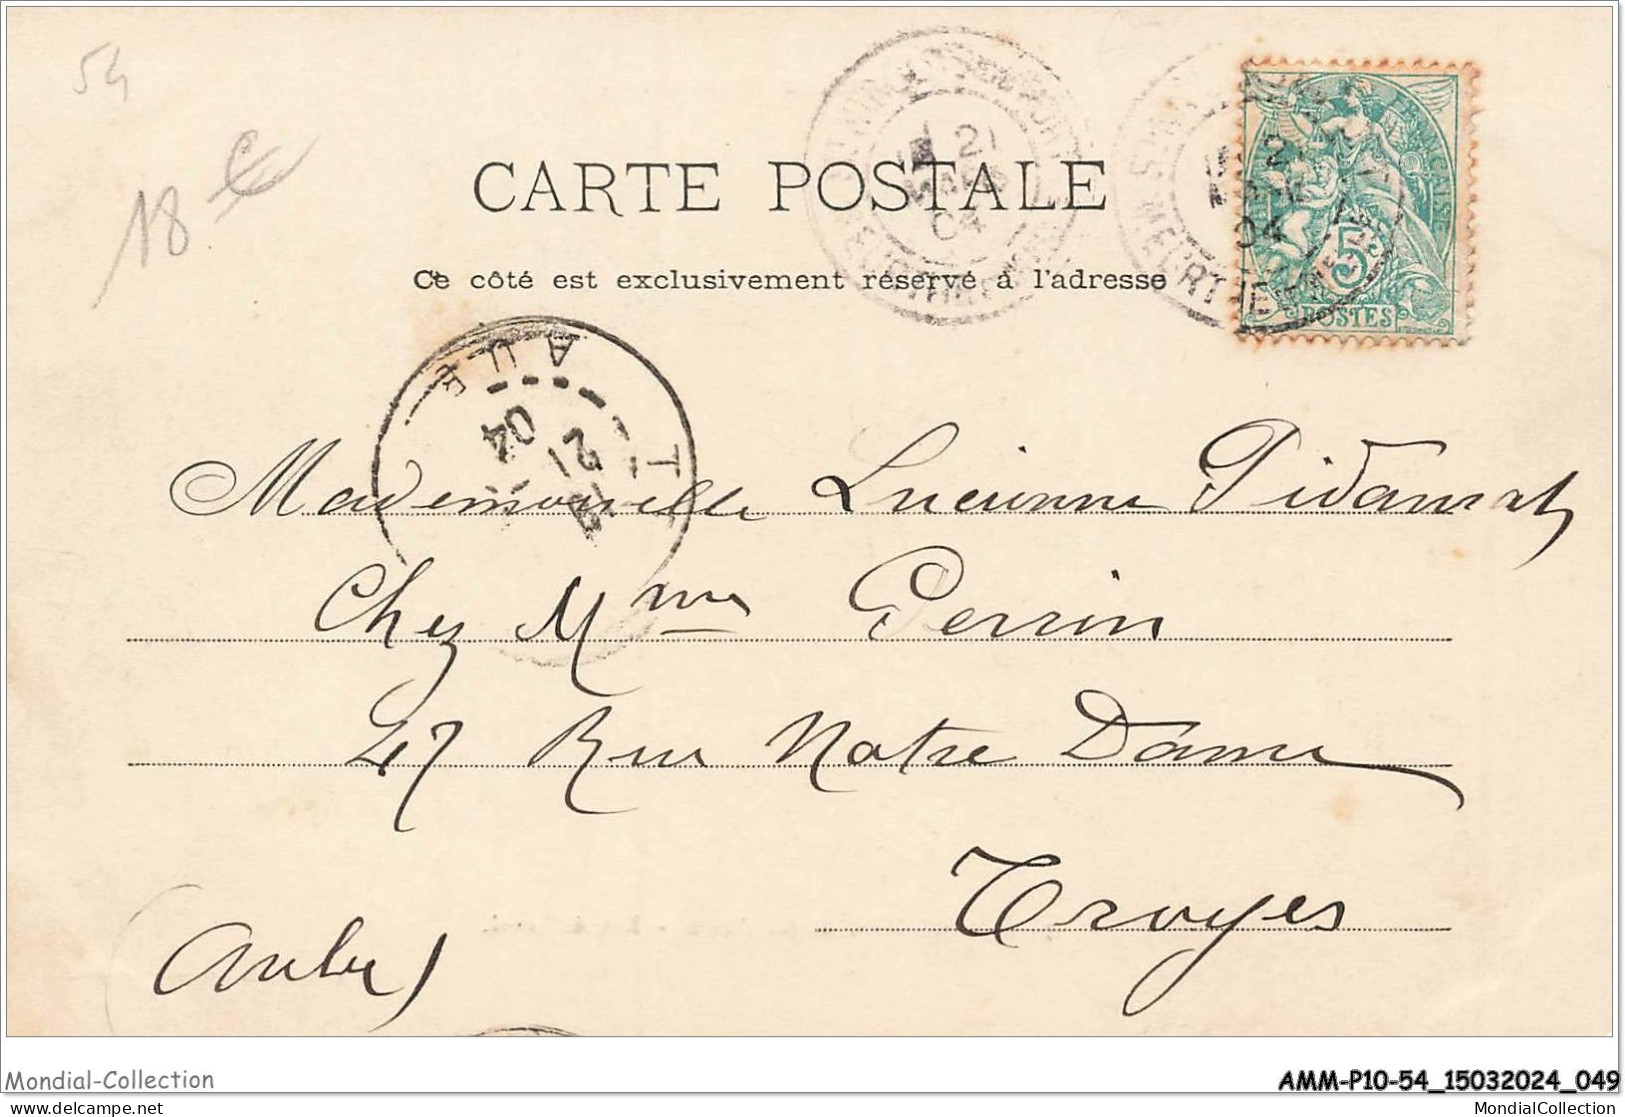 54
18 €
CARTE POSTALE
Ce côté est exclusivement réservé à l'adresse
21
04
04
5c
POSTES
AUBE
04
21
T
Mademoiselle Lucienne
Chez Mme Perrin
47 Rue Notre Dame
Troyes
(Aube)
Mondial-Collection
AMM-P10-54_15032024_049
delcampe.net
MondialCollection